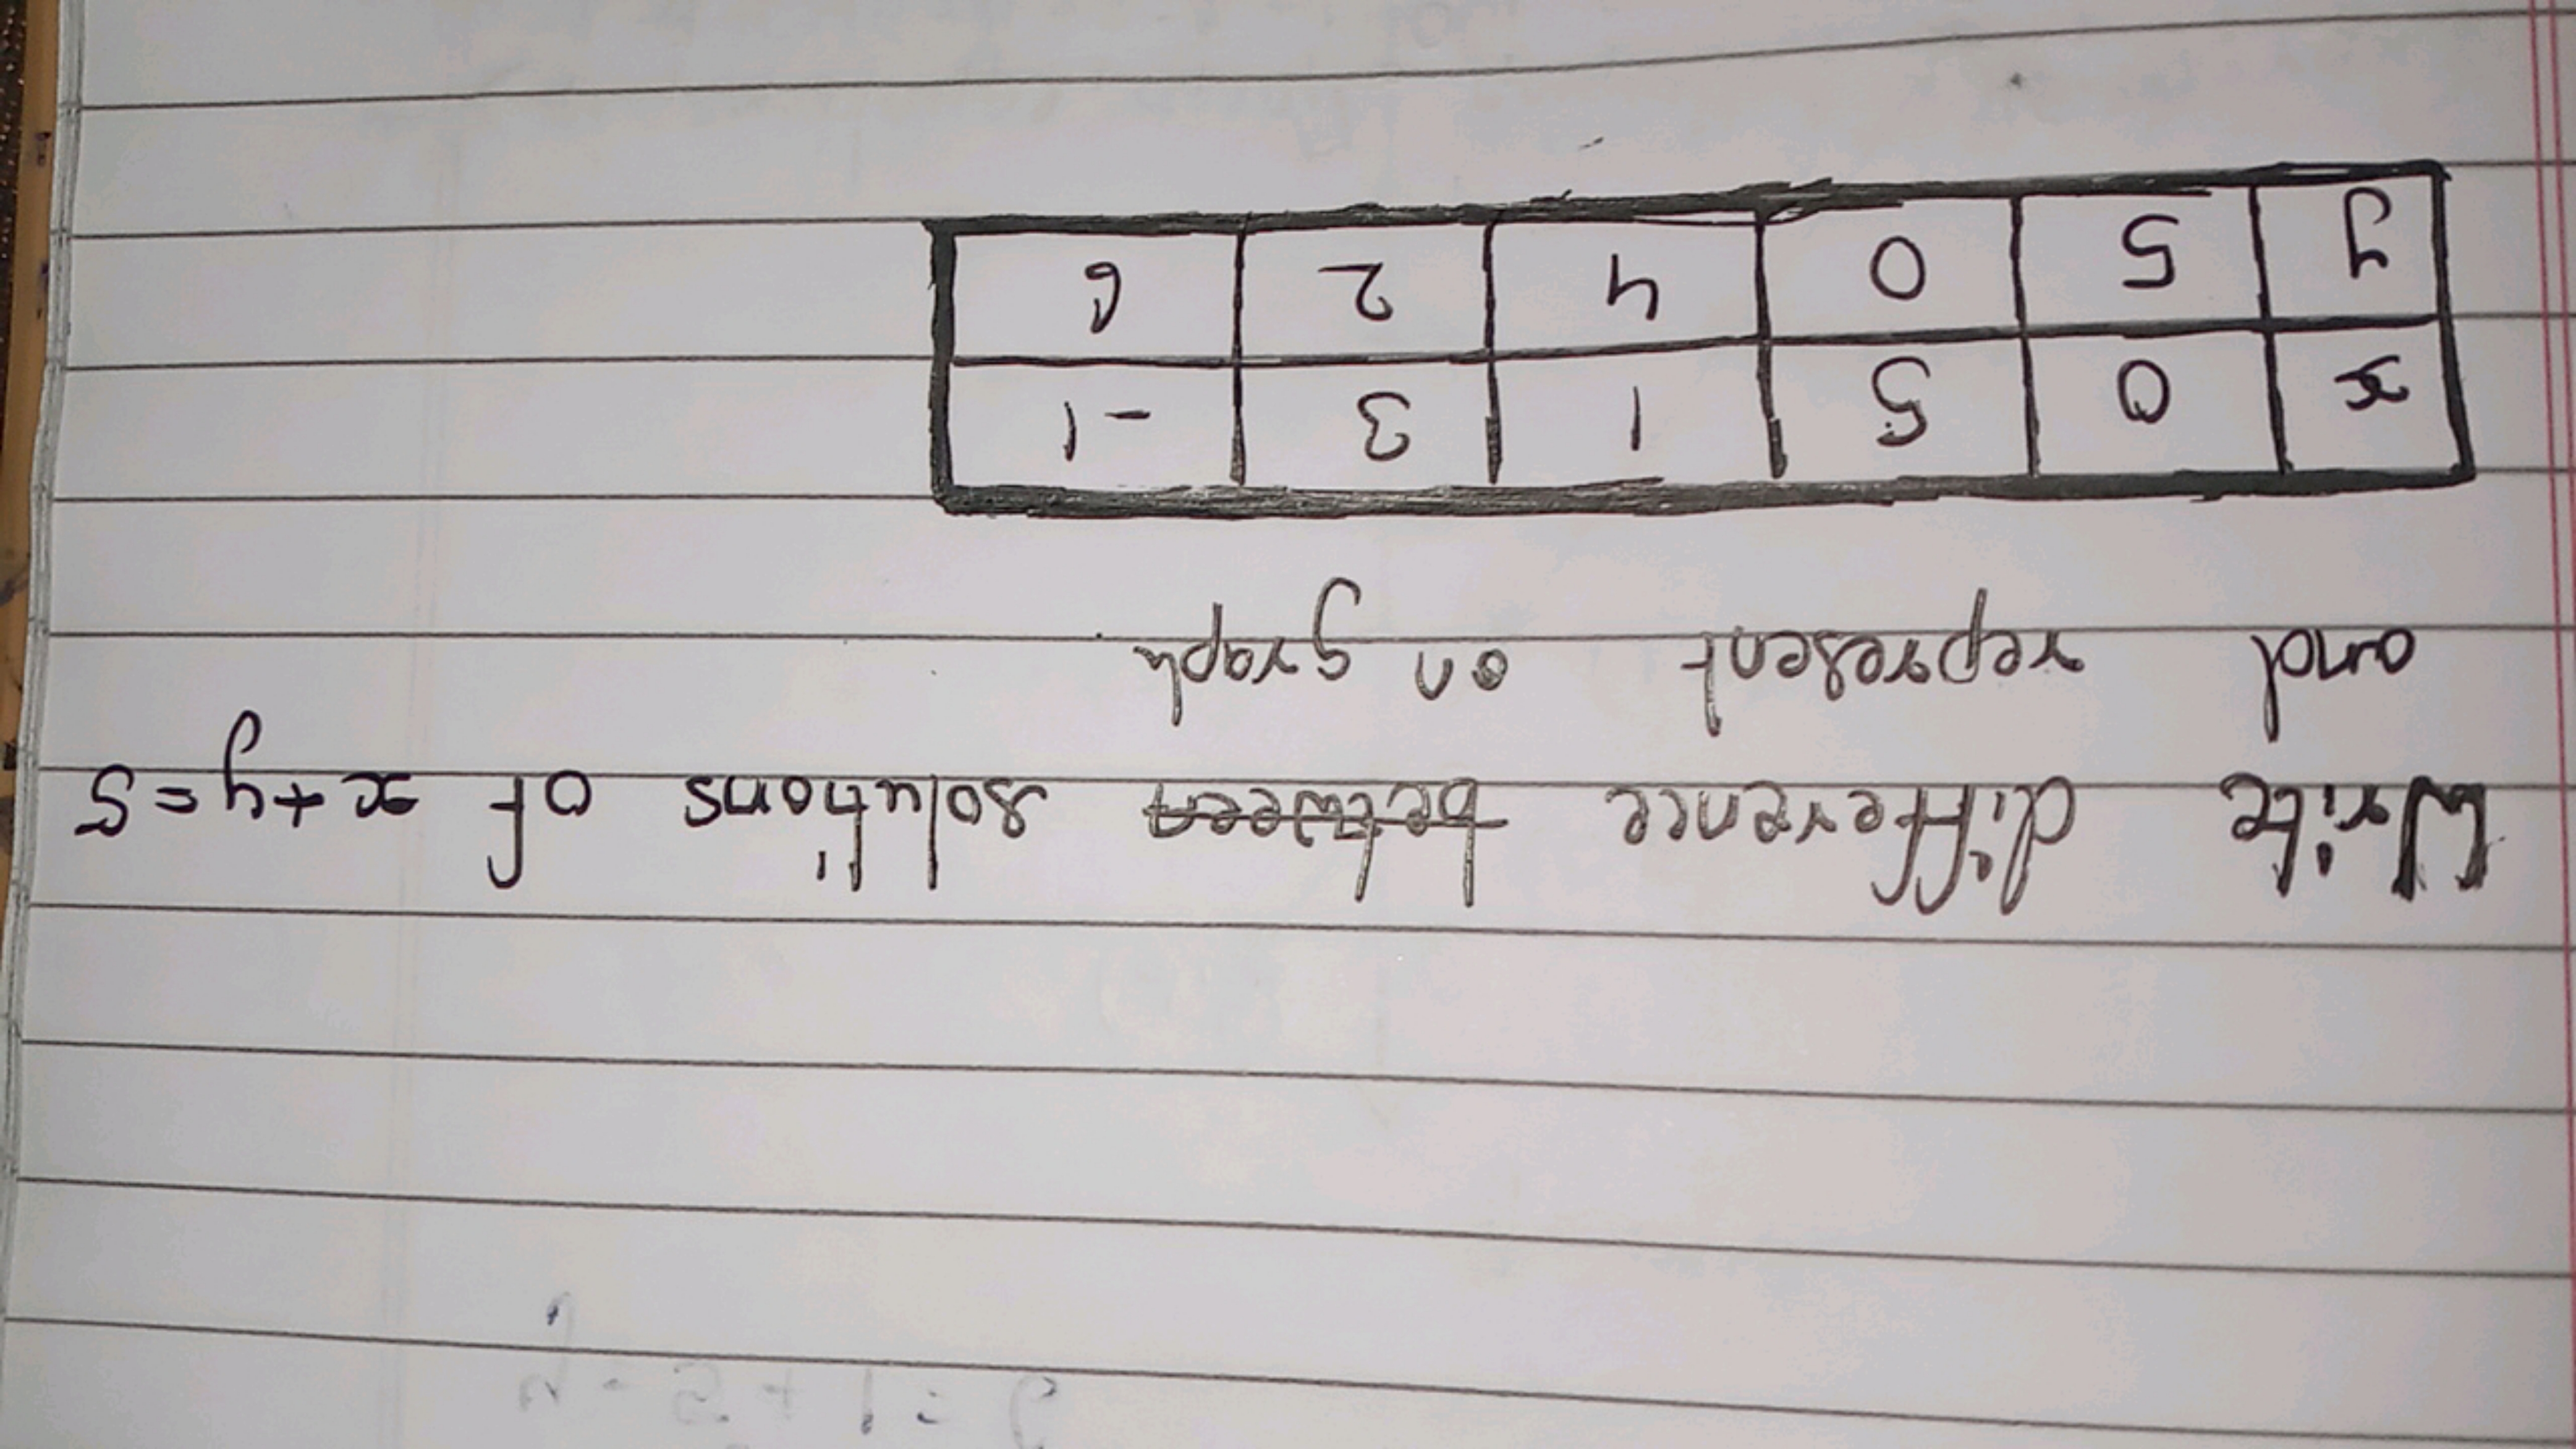 Write difference between solutions of x+y=5
and represent on graph
x 0 5 1 3 -1
y 5 0 4 2 6